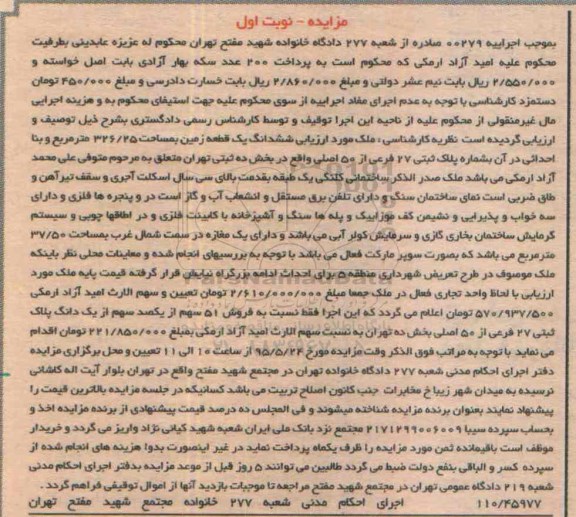 مزایده - نوبت اول
بموجب اجراییه ۰۰۲۷۹ صادره از شعبه ۲۷۷ دادگاه خانواده شهید مفتح تهران محکوم له عزیزه عابدینی بطرفیت
محکوم علیه امید آزاد ارمکی که محکوم است به پرداخت ۲۰۰ عدد سکه بهار آزادی بابت اصل خواسته و
۲/۵۵۰/۰۰۰ ریال بابت نیم عشر دولتی و مبلغ ۲/۸۶۰/۰۰۰ ریال بابت خسارت دادرسی و مبلغ ۴۵۰/۰۰۰ تومان
دستمزد کارشناسی با توجه به عدم اجرای مفاد اجراییه از سوی محکوم علیه جهت استیفای محکوم به و هزینه اجرایی
مال غیرمنقولی از محکوم علیه از ناحیه این اجرا توقیف و توسط کارشناس رسمی دادگستری بشرح ذیل توصیف و
ارزیابی گردیده است نظریه کارشناسی : ملک مورد ارزیابی ششدانگ یک قطعه زمین بمساحت ۳۲۶/۲۵ مترمربع و بنا
احداثی در آن بشماره پلاک ثبتی ۲۷ فرعی از ۵۰ اصلی واقع در بخش ده ثبتی تهران متعلق به مرحوم متوفی علی محمد
آزاد ارمکی می باشد ملک صدر الذکر ساختمانی کلنگی یک طبقه بقدمت بالای سی سال اسکلت آجری و سقف تیر آهن و
طاق ضربی است نمای ساختمان سنگی و دارای تلفن برق مستقل و انشعاب آب و گاز است در و پنجره ها فلزی و دارای
سه خواب و پذیرایی و نشیمن کف موزاییک و پله ها سنگ و آشپزخانه با کابینت فلزی و در اطاقها چوبی و سیستم
گرمایش ساختمان بخاری گازی و سرمایش کولر آبی می باشد و دارای یک مغازه در سمت شمال غرب بمساحت ۳۷/۵۰
مترمربع می باشد که بصورت سوپر مارکت فعال می باشد با توجه به بررسیهای انجام شده و معاینات محلی نظر باینکه
ملک موصوف در طرح تعریض شهرداری منطقه ۵ برای احداث ادامه بزرگراه نیایش قرار گرفته قیمت پایه ملک مورد
ارزیابی با لحاظ واحد تجاری فعال در ملک جمعا مبلغ ۲/۶۱۰/۰۰۰/۰۰۰ تومان تعیین و سهم الارث امید آزاد ارمکی
۵۷۰/۹۳۷/۵۰۰ تومان اعلام می گردد که این اجرا فقط نسبت به فروش ۵۱ سهم از یکصد سهم از یک دانگ پلاک
ثبتی ۲۷ فرعی از ۵۰ اصلی بخش ده تهران به نسبت سهم الارث امید آزاد ارمکی بمبلغ ۲۲۱/۸۵۰/۰۰۰ تومان اقدام
می نماید با توجه به مراتب فوق الذکر وقت مزایده مورخ ۹۵/۵/۲۴ از ساعت ۱۰ الی ۱۱ تعیین و محل برگزاری مزایده
دفتر اجرای احکام مدنی شعبه ۲۷۷ دادگاه خانواده تهران در مجتمع شهید مفتح واقع در تهران بلوار آیت اله کاشانی
نرسیده به میدان شهر زیبا خ مخابرات جنب کانون اصلاح تربیت می باشد کسانیکه در جلسه مزایده بالاترین قیمت را
پیشنهاد نمایند بعنوان برنده مزایده شناخته میشوند و فی المجلس ده درصد قیمت پیشنهادی از برنده مزایده اخذ و
بحساب سپرده سیبا ۲۱۷۱۲۹۹۰۰۶۰۰۹ مجتمع نزد بانک ملی ایران شعبه شهید کیانی نژاد واریز می گردد و خریدار
موظف است باقیمانده ثمن مورد مزایده را ظرف یکماه پرداخت نماید در غیر اینصورت بدوا هزینه های انجام شده از
سپرده کسر و الباقی بنفع دولت ضبط می گردد طالبین می توانند ۵ روز قبل از موعد مزایده بدفتر اجرای احکام مدنی
شعبه ۲۱۹ دادگاه عمومی تهران در مجتمع شهید مفتح مراجعه تا موجبات بازدید آنها از اموال توقیفی فراهم گردد .
۱۱۰/۴۵۹۷۷ اجرای احکام مدنی شعبه ۲۷۷ خانواده مجتمع شهید مفتح تهران
ParsNamadData